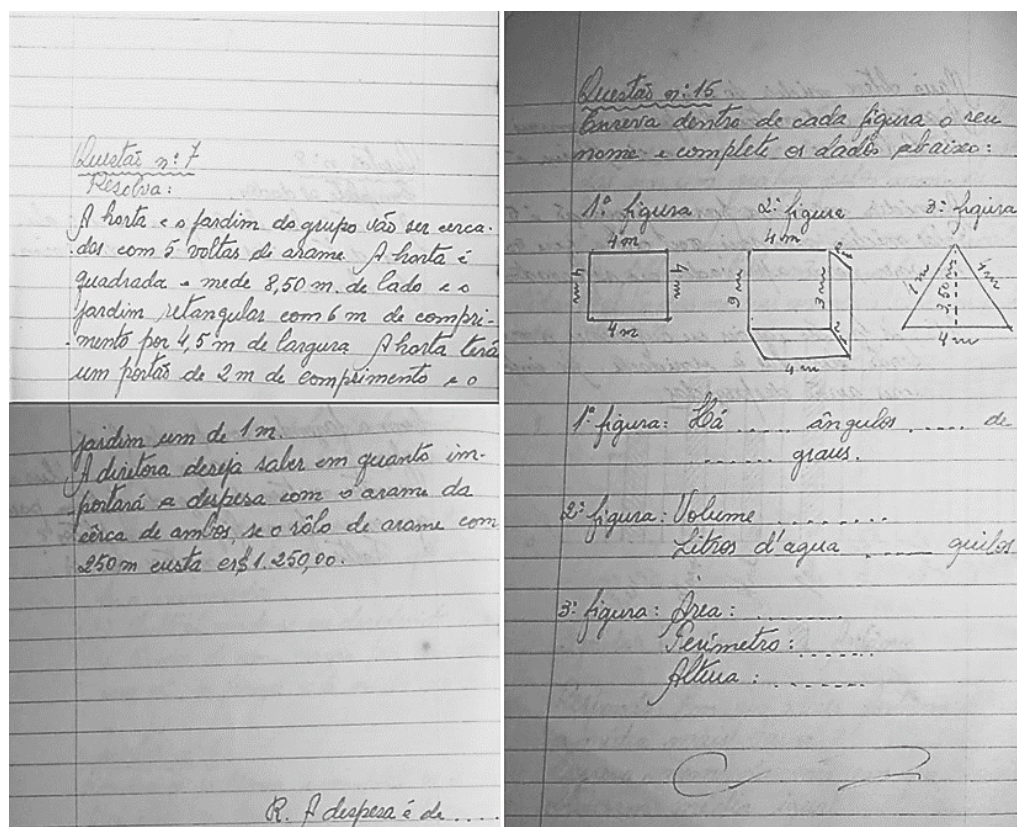 Questão nº 7
Resolva:
A horta e o jardim do grupo vão ser cerca-
dos com 5 voltas de arame. A horta é
quadrada e mede 8,50 m. de lado e o
jardim retangular com 6 m de compri-
mento por 4,5 m de largura. A horta terá
um portão de 2 m de comprimento e o
jardim um de 1 m.
A diretora deseja saber em quanto im-
portará a despesa com o arame da
cêrca de ambos, se o rôlo de arame com
250 m custa cr$ 1.250,00.
R. A despesa é de ....
Questão nº 15
Escreva dentro de cada figura o seu
nome e complete os dados abaixo:
1ª figura 2ª figura 3ª figura
4 m 4 m
4 m 4 m 6 m 3 m 4 m 3,50 m 4 m
4 m 4 m 4 m
1ª figura: Há ..... ângulos ..... de
....... graus.
2ª figura: Volume ........
Litros d'agua ...... quilos
3ª figura: Área: ........
Perímetro: .......
Altura: ........